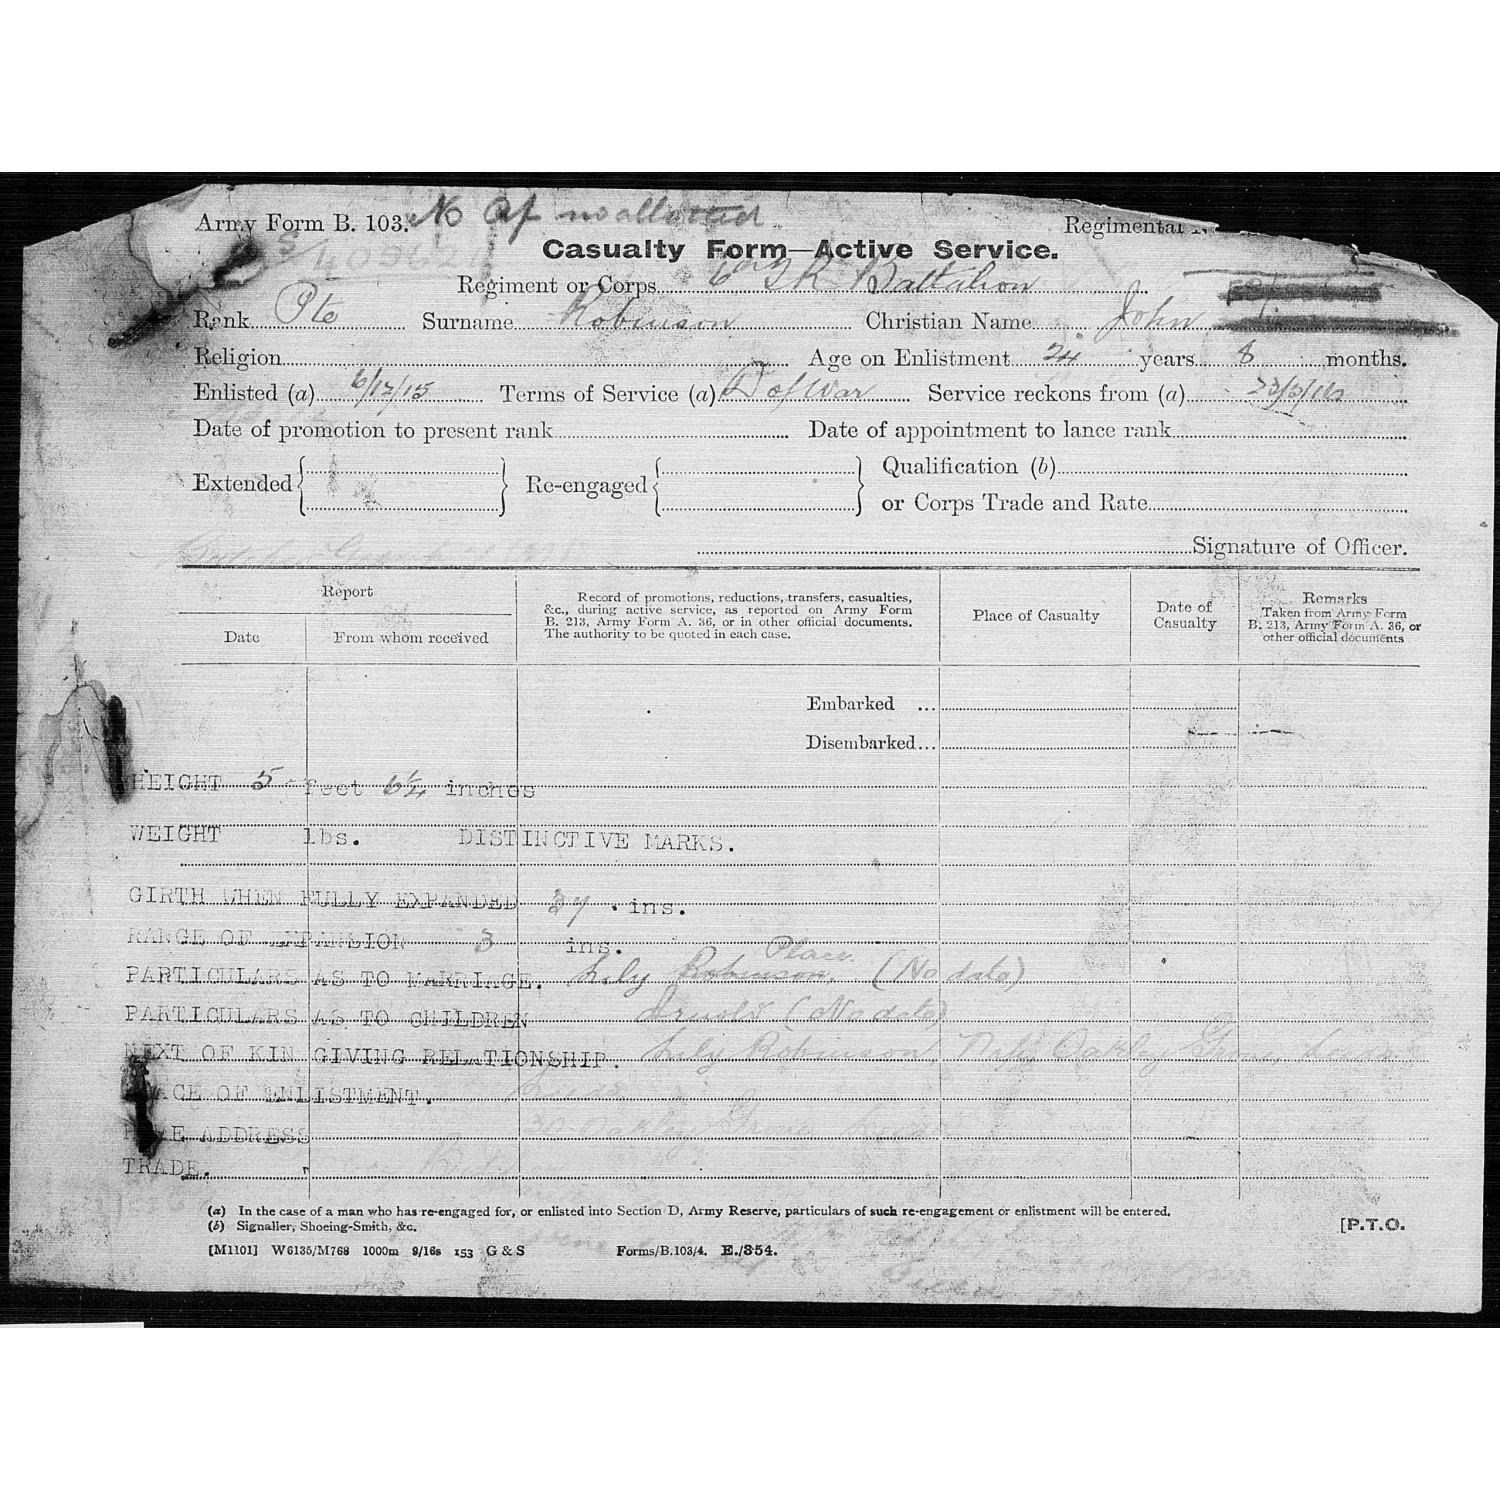 Army Form B. 103. No Af no allotted
Regimental
Casualty Form—Active Service.
Regiment or Corps 6th T R Battalion
Rank Pte Surname Robinson Christian Name John
Religion Age on Enlistment 24 years 8 months.
Enlisted (a) 6/12/15 Terms of Service (a) D of War Service reckons from (a)
Date of promotion to present rank Date of appointment to lance rank
Extended { } Re-engaged { } Qualification (b)
or Corps Trade and Rate
Signature of Officer.
Report
Date From whom received
Record of promotions, reductions, transfers, casualties,
&c., during active service, as reported on Army Form
B. 213, Army Form A. 36, or in other official documents.
The authority to be quoted in each case.
Place of Casualty
Date of
Casualty
Remarks
Taken from Army Form
B. 213, Army Form A. 36, or
other official documents
Embarked ...
Disembarked ...
HEIGHT 5 feet 6¼ inches
WEIGHT lbs. DISTINCTIVE MARKS.
GIRTH WHEN FULLY EXPANDED 37 ins.
RANGE OF EXPANSION 3 ins.
Place
PARTICULARS AS TO MARRIAGE. Lily Robinson, (No date)
PARTICULARS AS TO CHILDREN Arnold (No date)
NEXT OF KIN GIVING RELATIONSHIP. Lily Robinson, Oakley Leeds
PLACE OF ENLISTMENT. Leeds
HOME ADDRESS Oakley
TRADE.
(a) In the case of a man who has re-engaged for, or enlisted into Section D, Army Reserve, particulars of such re-engagement or enlistment will be entered.
(b) Signaller, Shoeing-Smith, &c.
[P.T.O.
[M1101] W6135/M768 1000m 9/16s 153 G & S Forms/B.103/4. E./354.